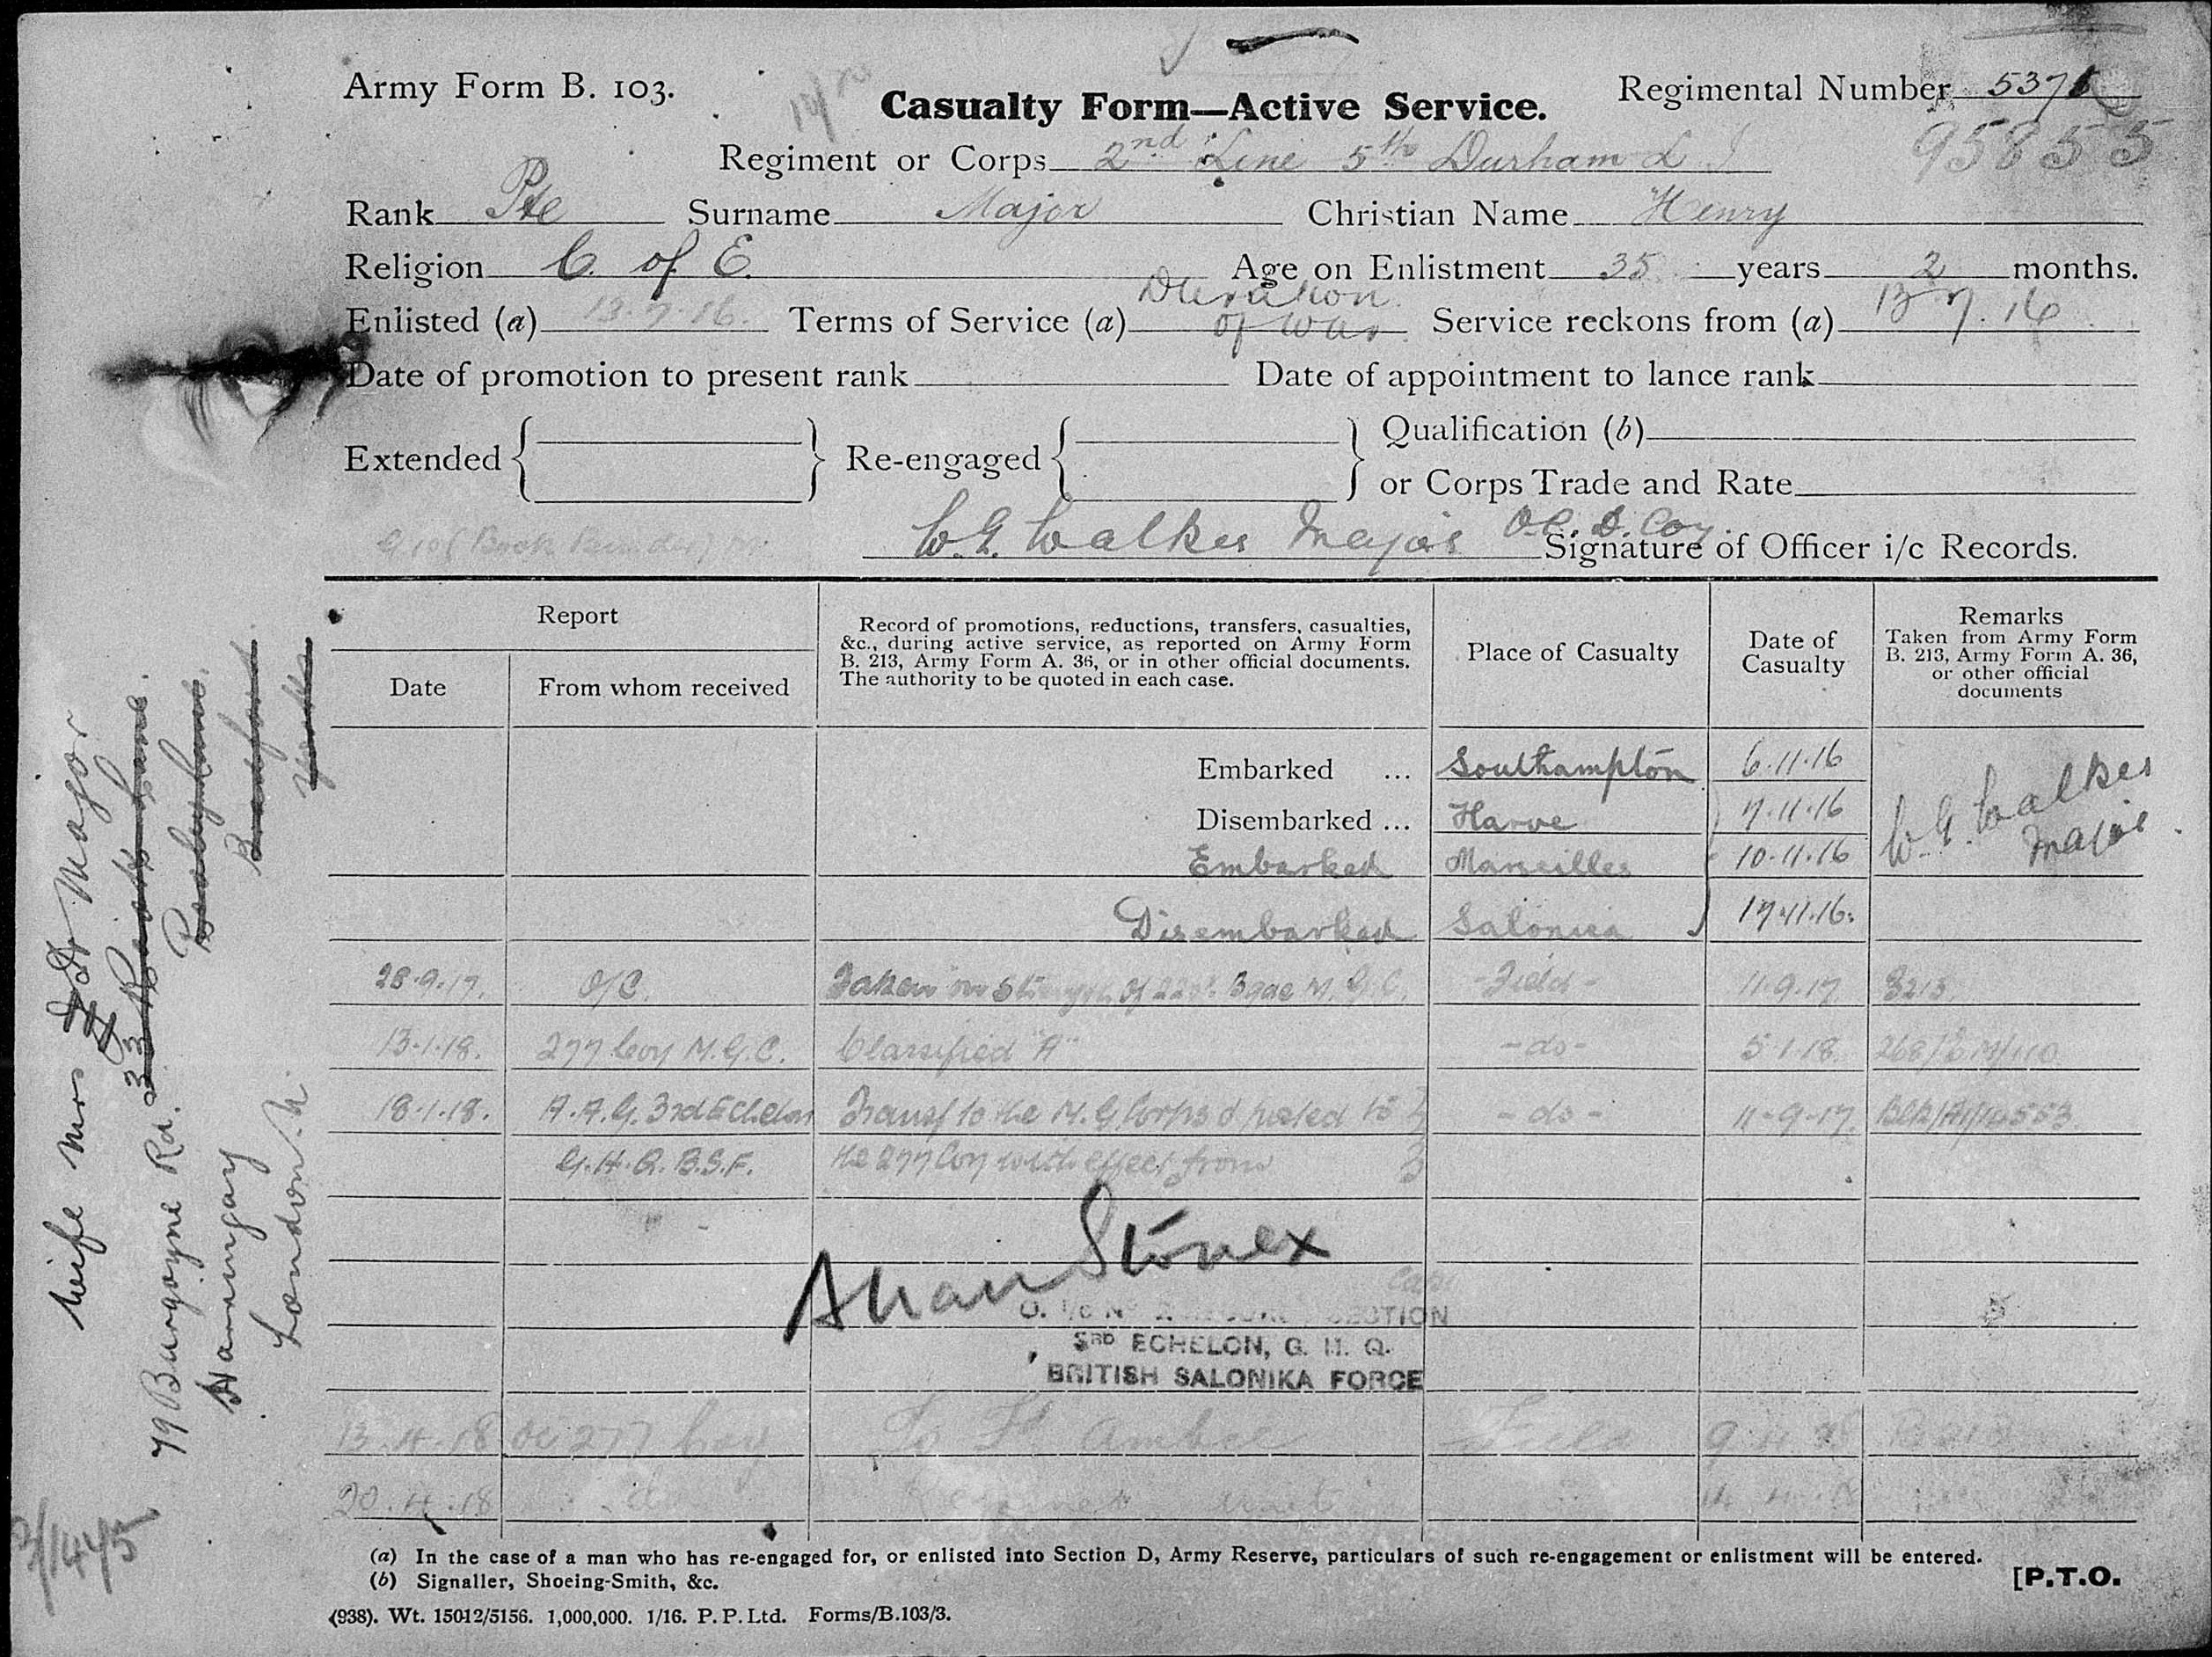 Army Form B. 103.
Casualty Form—Active Service.
Regimental Number 5376
95855
Regiment or Corps 2nd Line 5th Durham L I
Rank Pte Surname Major Christian Name Henry
Religion C. of E. Age on Enlistment 35 years 2 months.
Enlisted (a) 13.7.16. Terms of Service (a) Duration of War. Service reckons from (a) 13.7.16
Date of promotion to present rank Date of appointment to lance rank
Extended Re-engaged Qualification (b)
or Corps Trade and Rate
W.G. Walker Major O.C. D. Coy.
Signature of Officer i/c Records.
Report
Date
From whom received
Record of promotions, reductions, transfers, casualties, &c., during active service, as reported on Army Form B. 213, Army Form A. 36, or in other official documents. The authority to be quoted in each case.
Place of Casualty
Date of Casualty
Remarks
Taken from Army Form B. 213, Army Form A. 36, or other official documents
Embarked ... Southampton 6.11.16
Disembarked ... Harve 7.11.16
W.G. Walker Major.
Embarked Marseilles 10.11.16
Disembarked Salonica 17.11.16.
28.9.17. O/C. Taken on Strength of Bgde M.G.C. -Field- 11.9.17 B213
13.1.18. 277 Coy M.G.C. Classified "A" -do- 5.1.18.
18.1.18. A.A.G. 3rd Echelon Transf to the M.G. Corps & posted to -do- 11-9-17.
G.H.Q. B.S.F. the 277 Coy with effect from
SECTION
3RD ECHELON, G. H. Q.
BRITISH SALONIKA FORCE
13.4.18 OC 277 Coy To Fd Amb Field
20.4.18 do Rejoined unit
Wife Mrs Major
79 Burgoyne Rd.
Harringay
London. N.
(a) In the case of a man who has re-engaged for, or enlisted into Section D, Army Reserve, particulars of such re-engagement or enlistment will be entered.
(b) Signaller, Shoeing-Smith, &c.
[P.T.O.
(938). Wt. 15012/5156. 1,000,000. 1/16. P. P. Ltd. Forms/B.103/3.